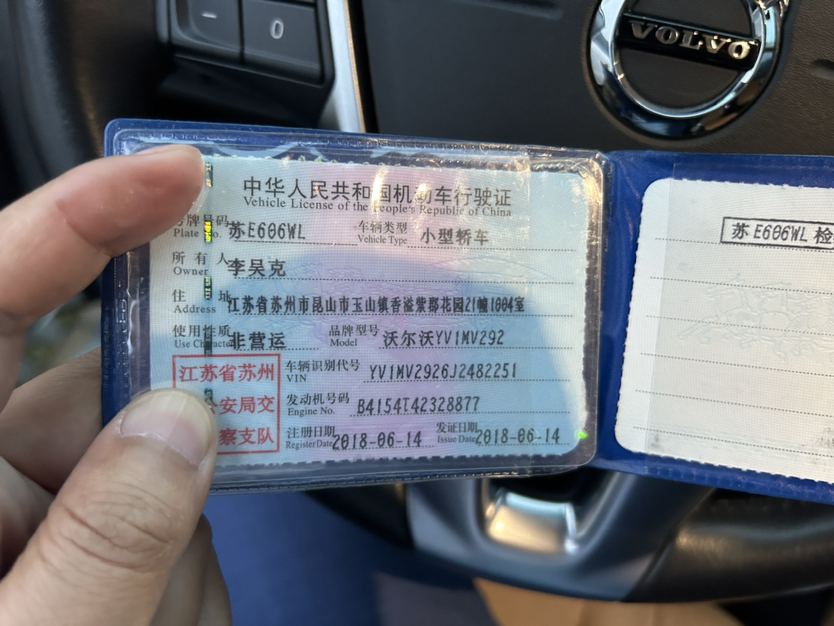 0
VOLVO
中华人民共和国机动车行驶证
Vehicle License of the People's Republic of China
号牌号码 苏E606WL 车辆类型 小型轿车
Plate No. Vehicle Type
所有人 李吴克
Owner
住址 江苏省苏州市昆山市玉山镇香溢紫郡花园21幢1004室
Address
使用性质 非营运 品牌型号 沃尔沃YV1MV292
Use Character Model
车辆识别代号 YV1MV2926J2482251
VIN
发动机号码 B4154T42328877
Engine No.
注册日期 2018-06-14 发证日期 2018-06-14
Register Date Issue Date
江苏省苏州
安局交
察支队
苏E606WL 检